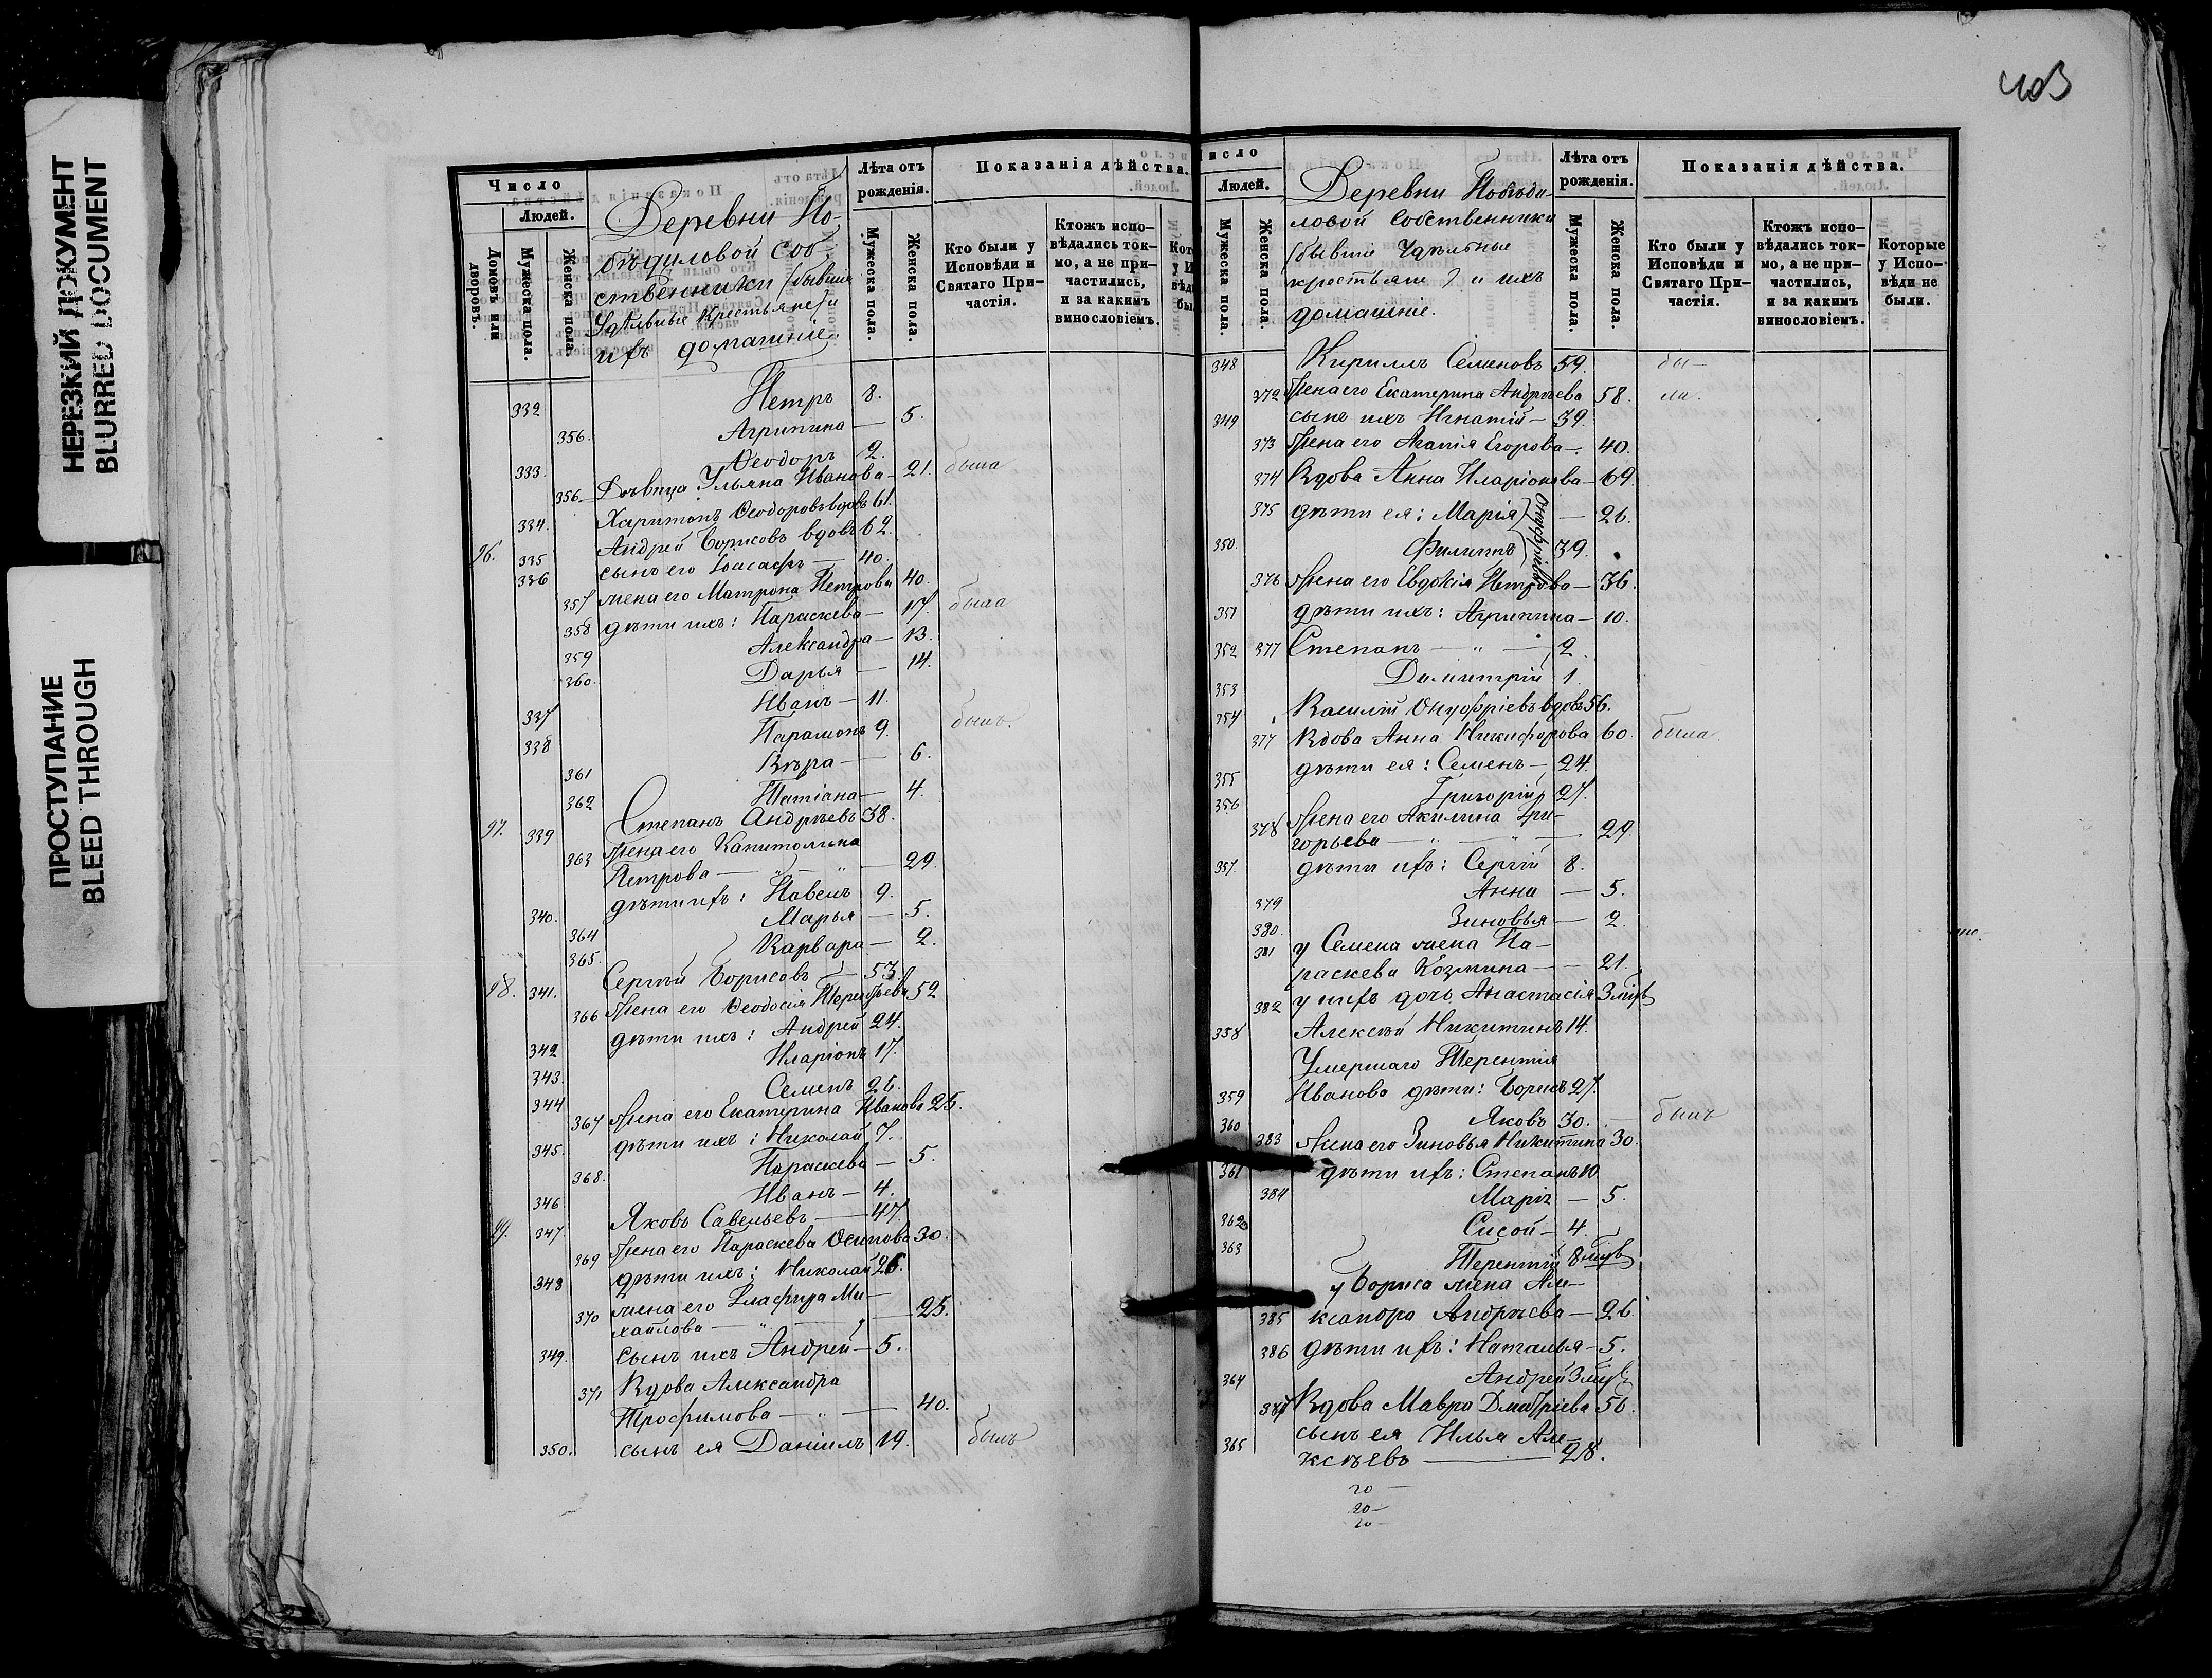 НЕРЕЗКИЙ ДОКУМЕНТ
BLURRED DOCUMENT
ПРОСТУПАНИЕ
BLEED THROUGH
Число
Людей.
Домовъ или дворовъ.
Мужеска пола.
Женска пола.
Деревни По-
бѣдиловой Соб-
ственники (бывшие
Удѣльные крестьяне) и
ихъ домашніе
Лѣта отъ рожденія.
Мужеска пола.
Женска пола.
Показанія дѣйства.
Кто были у Исповѣди и Святаго При-частія.
Ктожъ испо-вѣдались ток-мо, а не при-частились, и за какимъ винословіемъ.
332 Петръ 8.
356. Агрипина — 5.
333. Ѳеодоръ 2.
356 Дѣвица Ульяна Иванова — 21. была
334. Харитонъ Ѳеодоровъ вдовъ 61.
96. 335 Андрей Борисовъ вдовъ 62.
336 сынъ его Іоасафъ — 40.
357 жена его Матрона Петрова 40.
358 дѣти ихъ: Параскева — 17. была
359 Александра — 13.
360. Дарья — 14.
337 Иванъ — 11.
338 Парамонъ 9. былъ.
361 Вѣра — 6.
362 Татіана — 4.
97. 339 Степанъ Андрѣевъ 38.
363 жена его Капитолина
Петрова — " — " — 29.
340. дѣти ихъ: Павелъ 9.
364 Марья — 5.
365. Варвара — 2.
98. 341. Сергѣй Борисовъ — 53.
366 жена его Ѳеодосія Терентьева 52
342 дѣти ихъ: Андрей 24.
343. Иларіонъ 17.
344 Семенъ 26.
367 жена его Екатерина Иванова 25.
345. дѣти ихъ: Николай 7.
368. Параскева — 5.
346 Иванъ — 4.
99. 347. Яковъ Савельевъ — 47.
369 жена его Параскева Осипова 30.
348 дѣти ихъ: Николай 26.
370 жена его Глафира Ми-
хайлова — " — 25.
349. сынъ ихъ Андрей — 5.
371 Вдова Александра
Трофимова — " — 40.
350. сынъ ея Даніилъ 19. былъ
403
Число
Людей.
Мужеска пола.
Женска пола.
Деревни Побѣди-
ловой Собственники
(бывшіе Удѣльные
крестьяне) и ихъ
домашніе.
Лѣта отъ рожденія.
Мужеска пола.
Женска пола.
Показанія дѣйства.
Кто были у Исповѣди и Святаго При-частія.
Ктожъ испо-вѣдались ток-мо, а не при-частились, и за какимъ винословіемъ.
Которые у Испо-вѣди не были.
348 Кириллъ Семеновъ 59. бы-
372 жена его Екатерина Андрѣева 58. ли.
349 сынъ ихъ Игнатій — 39.
373 жена его Агапія Егорова — 40.
374 Вдова Анна Иларіонова — 69.
375 дѣти ея: Марія — 26.
350. Филиппъ 39.
376 жена его Евдокія Петрова — 36.
351 дѣти ихъ: Агрипина — 10.
352 377 Степанъ — " — 2.
353 Димитрій 1.
354 Василій Онуфріевъ вдовъ 56.
377 Вдова Анна Никифорова 60. была.
355 дѣти ея: Семенъ — 24.
356 Григорій 27.
378 жена его Акилина Гри-
горьева — " — " — 29
357. дѣти ихъ: Сергій 8.
379 Анна — 5.
380. Зиновья — 2.
381 у Семена жена Па-
раскева Козмина — 21.
382 у нихъ дочь Анастасія 3 міс
358 Алексѣй Никитинъ 14.
Умершаго Терентія
359 Иванова дѣти: Борисъ 27.
360 Яковъ 30. былъ
383 жена его Зиновья Никитина 30.
361 дѣти ихъ: Степанъ 10
384 Марія — 5.
362 Сисой — 4.
363 Терентій 8 міс
у Бориса жена Але-
385 ксандра Андрѣева — 26.
386 дѣти ихъ: Наталья — 5.
364 Андрей 3 міс
387 Вдова Мавра Дмитріева 56.
365 сынъ ея Илья Але-
ксѣевъ — 28.
20 —
20 —
20 —